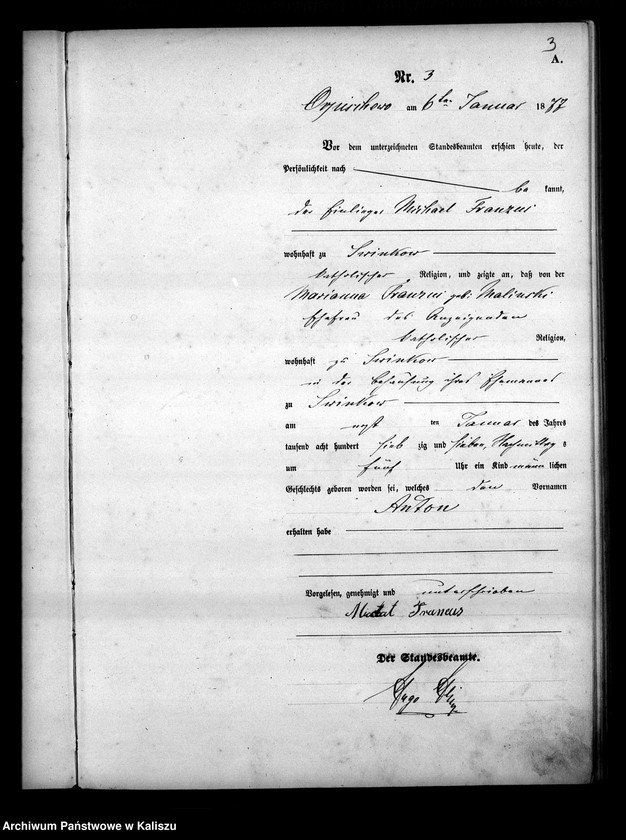 3
A.
Nr. 3
am 6ten Januar 1877
Vor dem unterzeichneten Standesbeamten erschien heute, der
Persönlichkeit nach
be kannt,
der Einlieger Michael Franzus
wohnhaft zu Swinkow
katholischer Religion, und zeigte an, daß von der
Marianna Franzus geb: Malinski
Ehefrau des Anzeigenden
katholischer Religion,
wohnhaft zu Swinkow
in der Behausung ihres Ehemannes
zu Swinkow
am ten Januar des Jahres
tausend acht hundert sieb zig und sieben, Nachmittag s
um fünf Uhr ein Kind männ lichen
Geschlechts geboren worden sei, welches den Vornamen
Anton
erhalten habe
Vorgelesen, genehmigt und unterschrieben
Francus
Der Standesbeamte.
Hugo
Archiwum Państwowe w Kaliszu